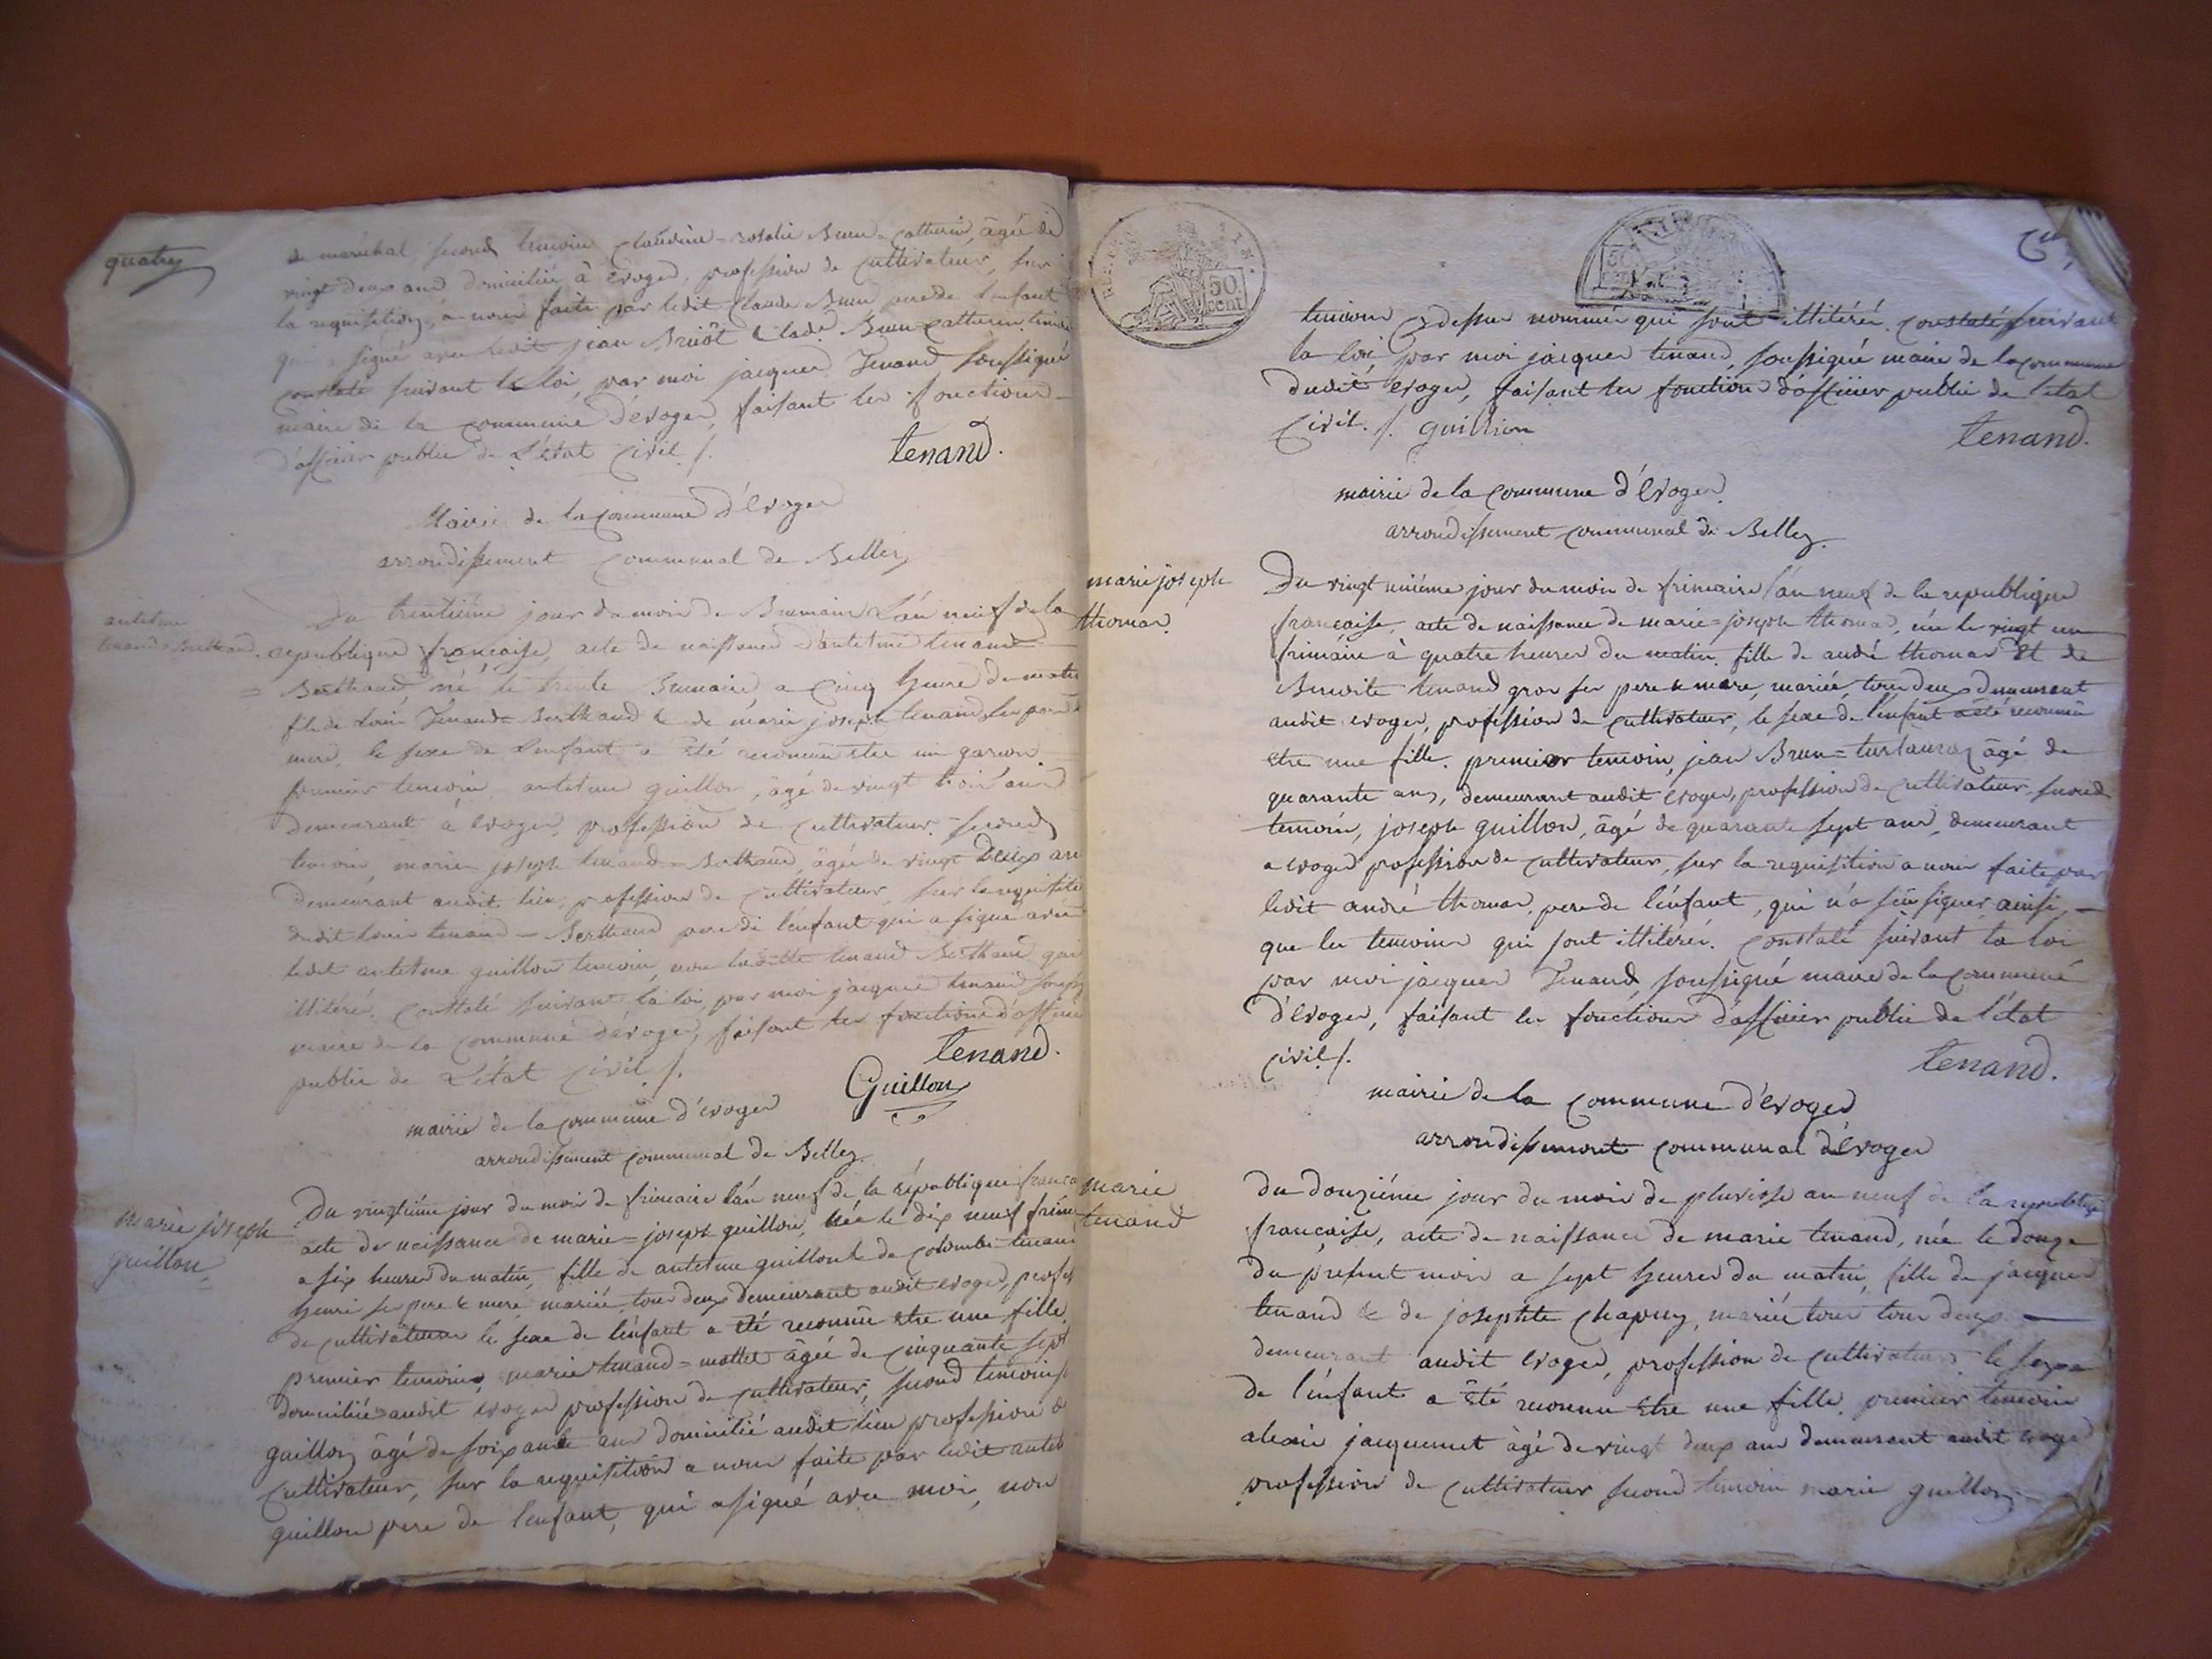 quatre
de maréchal, second temoin claudine-rosalie Brun-catherin, âgée de
vingt deux ans domiciliée à evoges, profession de cultivateur, sur
la requisition, a nous faite par ledit claude Brun pere de l'enfant
qui a signé avec ledit jean
constaté suivant la loi, par moi jacques Tenand soussigné
maire de la commune d'évoges, faisant les fonctions
d'officier public de L'état civil ./.
tenand.
Mairie de la Commune d'Evoges
arrondissement Communal de Belley
antelme
tenand=Berthand.
Du trentiéme jour du mois de Brumaire L'an neuf de la
republique française, acte de naissance d'antelme tenand
= Berthand, né le trente Brumaire a Cinq heure du matin
fils de Louis Tenand=Berthand & de marie joseph tenand, ses pere &
mere, le sexe de L'enfant a été reconnu etre un garcon.
premier temoin, antelme guillon, âgé de vingt trois ans
demeurant a evoges, profession de cultivateur. second
temoin, marie-joseph tenand-Berthand, âgée de vingt deux ans
demeurant audit lieu, profession de cultivateur, sur la requisition
dudit Louis tenand-Berthand pere de l'enfant qui a signé avec
ledit antelme guillon temoin, non ladite tenand Berthand qui
illitérée. Constaté suivant la loi, par moi jacques tenand
maire de la commune d'évoges, faisant les fonctions d'officier
public de L'état Civil ./.
tenand.
Guillon
mairie de la Commune d'evoges
arrondissement Communal de Belley.
marie joseph
guillon
Du vingtiéme jour du mois de frimaire l'an neuf de la république
acte de naissance de marie=joseph guillon, née le dix neuf
a six heures du matin, fille de antelme guillon & de colombe tenand
henri ses pere & mere mariés, tous deux demeurant audit evoges,
de cultivateur le sexe de l'enfant a été reconnû etre une fille.
premier temoin, marie tenand=mollet âgée de cinquante sept
domiciliée audit evoges profession de cultivateur, second temoin
guillon âgé de soixante ans domicilié audit lieu profession de
cultivateur, sur la requisition a nous faite par ledit
guillon pere de l'enfant, qui a signé avec moi, non
50
cent
temoins cydessus nommés qui sont illitérés. Constaté suivant
la loi, par moi jacques tenand, soussigné maire de la commune
dudit evoges, faisant les fonctions d'officier public de l'etat
Civil. ./. guillion
tenand.
mairie de la Commune d'Evoges.
arrondissement communal de Belley.
marie joseph
thomas.
Du vingt uniéme jour du mois de frimaire l'an neuf de la republique
française, acte de naissance de marie=joseph thomas, née le vingt un
frimaire à quatre heures du matin, fille de andré thomas Et de
Benoite tenand gros ses pere & mere, mariés, tous deux demeurant
audit evoges, profession de cultivateur, le sexe de l'enfant a été reconnû
etre une fille. premier temoin, jean Brun=turlauraz âgé de
quarante ans, demeurant audit evoges, profession de cultivateur, second
temoin, joseph guillon, âgé de quarante sept ans, demeurant
a evoges profession de cultivateur, sur la requisition a nous faite par
ledit andré thomas, pere de l'enfant, qui n'a sçu signer, ainsi
que les temoins qui sont illitérés. Constaté suivant la loi
par moi jacques Tenand soussigné maire de la commune
d'Evoges, faisant les fonctions d'officier public de l'état
civil ./.
tenand.
mairie de la Commune d'évoges
arrondissement communal d'Evoges
marie
tenand
du douziéme jour du mois de pluviose an neuf de la republique
française, acte de naissance de marie tenand, née le douze
du present mois a sept heures du matin, fille de jacques
tenand & de josephte chapuy, mariés tous tous deux
demeurant audit evoges, profession de cultivateurs le sexe
de l'enfant a été reconnu etre une fille. premier temoin
alexis jacquemet âgé de vingt deux ans demeurant audit evoges
profession de Cultivateur second temoin marie guillon